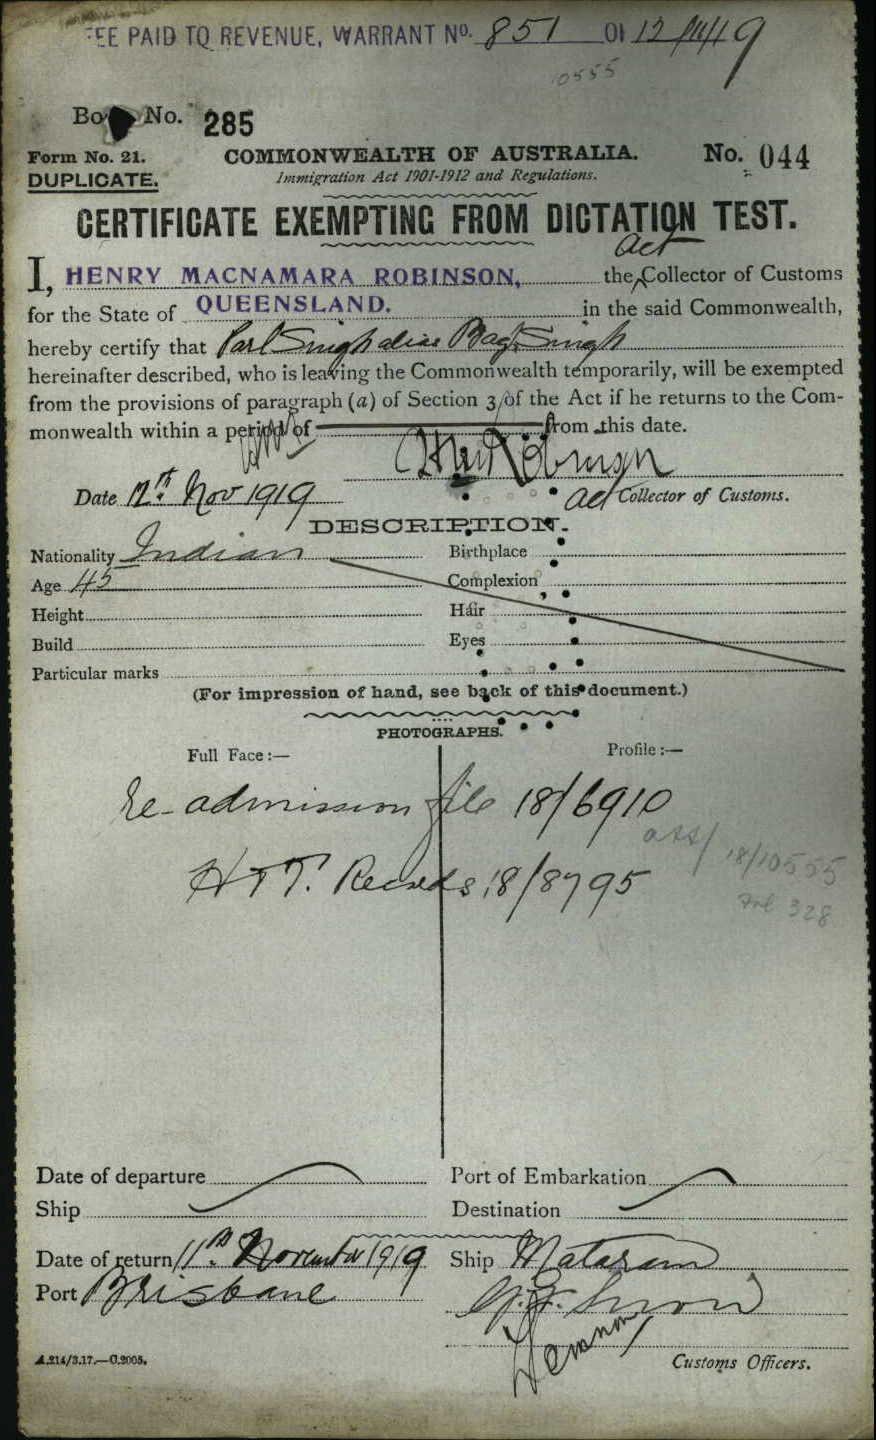 FEE PAID TO REVENUE, WARRANT No. 851 OF 12/11/19
10555
Book No. 285
Form No. 21. COMMONWEALTH OF AUSTRALIA. No. 044
DUPLICATE. Immigration Act 1901-1912 and Regulations.
CERTIFICATE EXEMPTING FROM DICTATION TEST.
Act
I, HENRY MACNAMARA ROBINSON, the Collector of Customs
for the State of QUEENSLAND. in the said Commonwealth,
hereby certify that Parl Singh alias Bag Singh
hereinafter described, who is leaving the Commonwealth temporarily, will be exempted
from the provisions of paragraph (a) of Section 3 of the Act if he returns to the Com-
monwealth within a period of from this date.
Date 12th Nov 1919 Act Collector of Customs.
DESCRIPTION.
Nationality Indian Birthplace
Age 45 Complexion
Height Hair
Build Eyes
Particular marks
(For impression of hand, see back of this document.)
PHOTOGRAPHS.
Full Face :— Profile :—
Re-admission file 18/6910
att/ 18/10555
HTT. Records 18/8795
328
Date of departure Port of Embarkation
Ship Destination
Date of return 11th November 1919 Ship Mataram
Port Brisbane
A.214/3.17.—C.2005. Customs Officers.